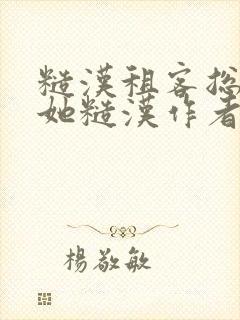 糙漢租客總
她糙漢作者
楊敬敏